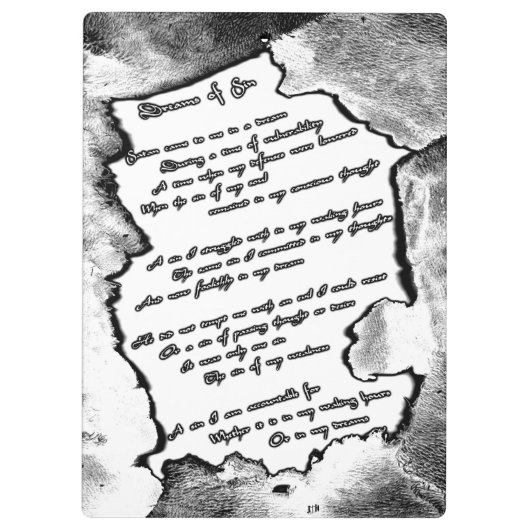 Dreams of Sin
Satan came to me in a dream
During a time of vulnerability
A time when my defenses were lowered
When the sin of my soul
remained in my conscious thought
A sin I struggled with in my waking hours
The same sin I committed in my thoughts
And now foolishly in my dream
He did not tempt me with an evil I could resist
Or a sin of passing thought or desire
It was only one sin
The sin of my weakness
A sin I am accountable for
Whether it is in my waking hours
Or in my dreams